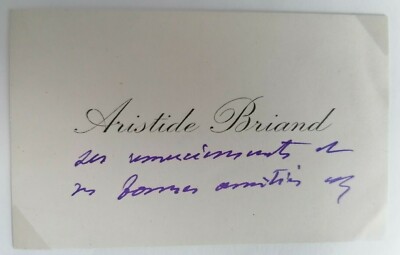 Aristide Briand
ses remerciements et
ses bonnes amitiés